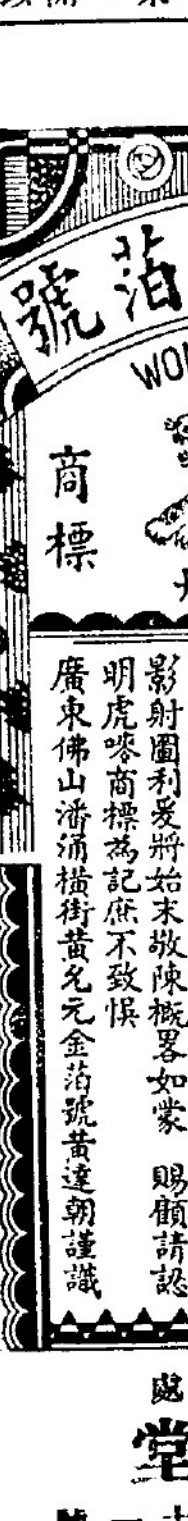 箔號
WON
商標
影射圖利爰將始末敬陳概畧如蒙 賜顧請認
明虎嘜商標為記庶不致悞
廣東佛山潘涌橫街黃允元金箔號黃達朝謹識
處
堂